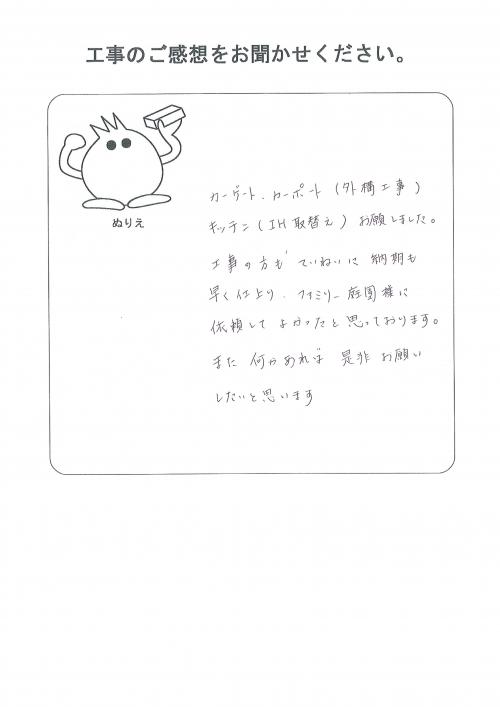 工事のご感想をお聞かせください。
ぬりえ
カーゲート、カーポート（外構工事）
キッチン（IH取替え）お願しました。
工事の方も ていねいに 納期も
早く仕上り、ファミリー庭園様に
依頼して よかったと思っております。
また 何かあれば 是非 お願い
したいと思います